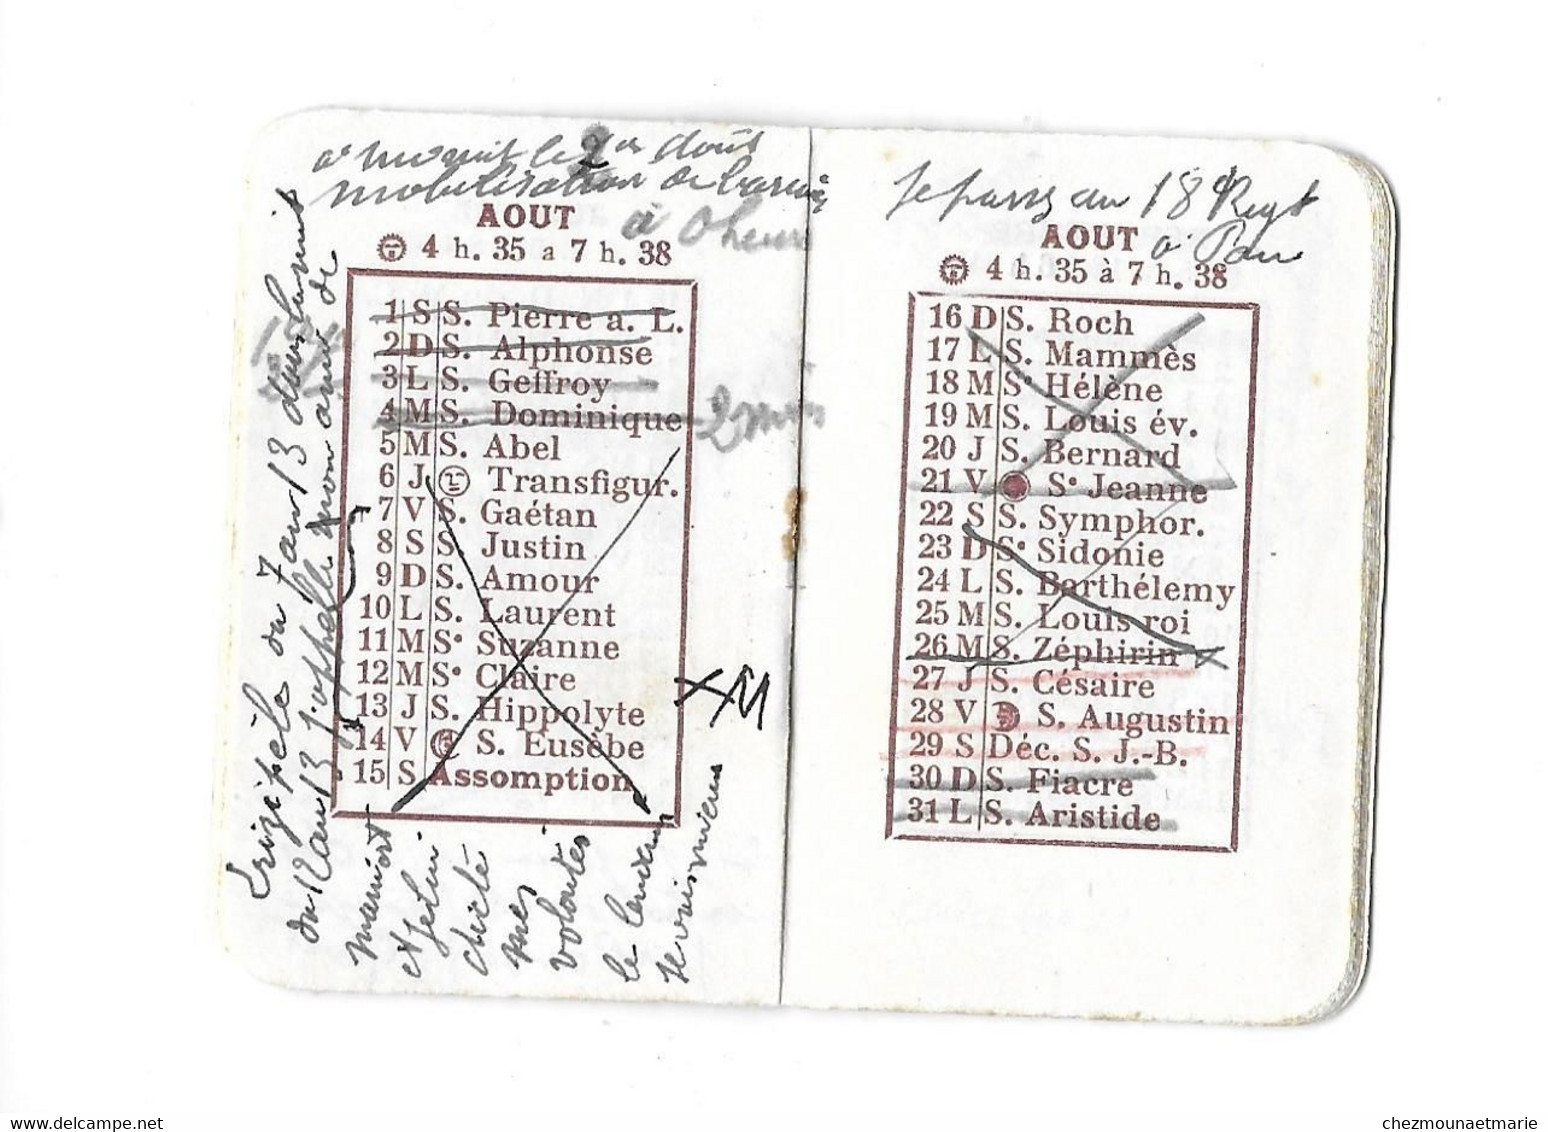 a minuit le 2 août
mobilisation de
à 0 heure
AOUT
4 h. 35 a 7 h. 38
1 S S. Pierre a. L.
2 D S. Alphonse
3 L S. Geffroy
4 M S. Dominique
5 M S. Abel
6 J Transfigur.
7 V S. Gaétan
8 S S. Justin
9 D S. Amour
10 L S. Laurent
11 M Sᵉ Suzanne
12 M Sᵉ Claire
13 J S. Hippolyte
14 V S. Eusèbe
15 S Assomption
XM
Erizipèle du 7 au 13 dans la nuit
du 12 au 13 j'appelle mon ami de
et je lui
dicté
mes
volontés
le
je vais mieux
Je passe au 18 Regt
a Pau
AOUT
4 h. 35 à 7 h. 38
16 D S. Roch
17 L S. Mammès
18 M Sᵉ Hélène
19 M S. Louis év.
20 J S. Bernard
21 V Sᵉ Jeanne
22 S S. Symphor.
23 D Sᵉ Sidonie
24 L S. Barthélemy
25 M S. Louis roi
26 M S. Zéphirin
27 J S. Césaire
28 V S. Augustin
29 S Déc. S. J.-B.
30 D S. Fiacre
31 L S. Aristide
delcampe.net
chezmounaetmarie